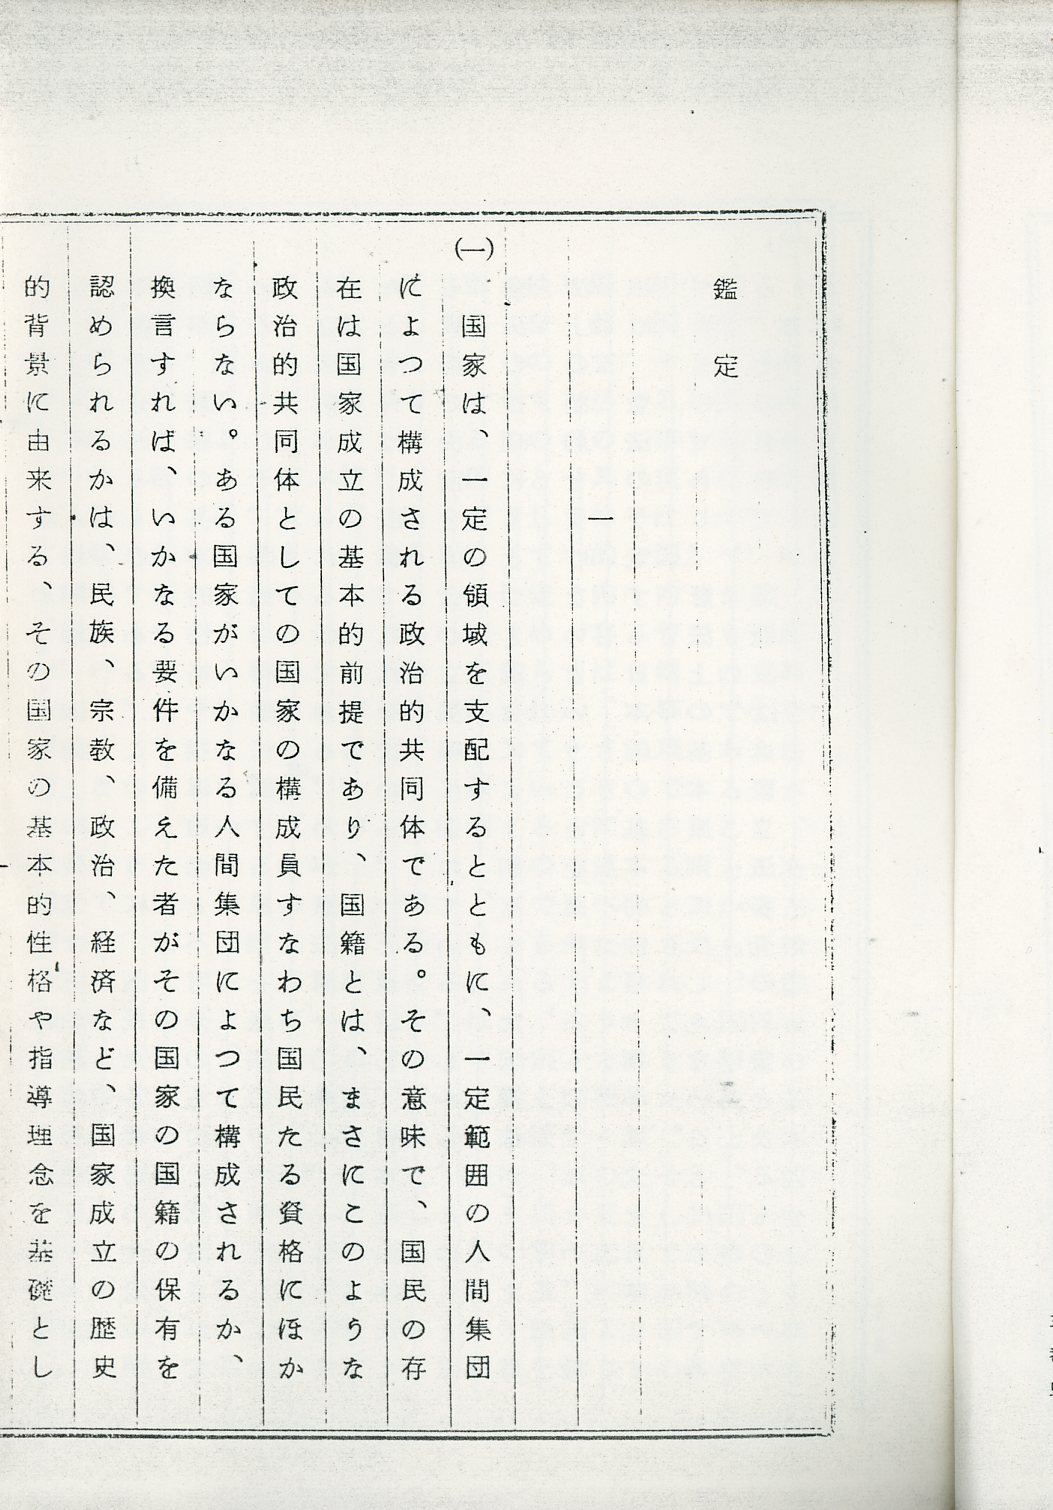 鑑定
一
(一)　国家は、一定の領域を支配するとともに、一定範囲の人間集団
によつて構成される政治的共同体である。その意味で、国民の存
在は国家成立の基本的前提であり、国籍とは、まさにこのような
政治的共同体としての国家の構成員すなわち国民たる資格にほか
ならない。ある国家がいかなる人間集団によつて構成されるか、
換言すれば、いかなる要件を備えた者がその国家の国籍の保有を
認められるかは、民族、宗教、政治、経済など、国家成立の歴史
的背景に由来する、その国家の基本的性格や指導理念を基礎とし